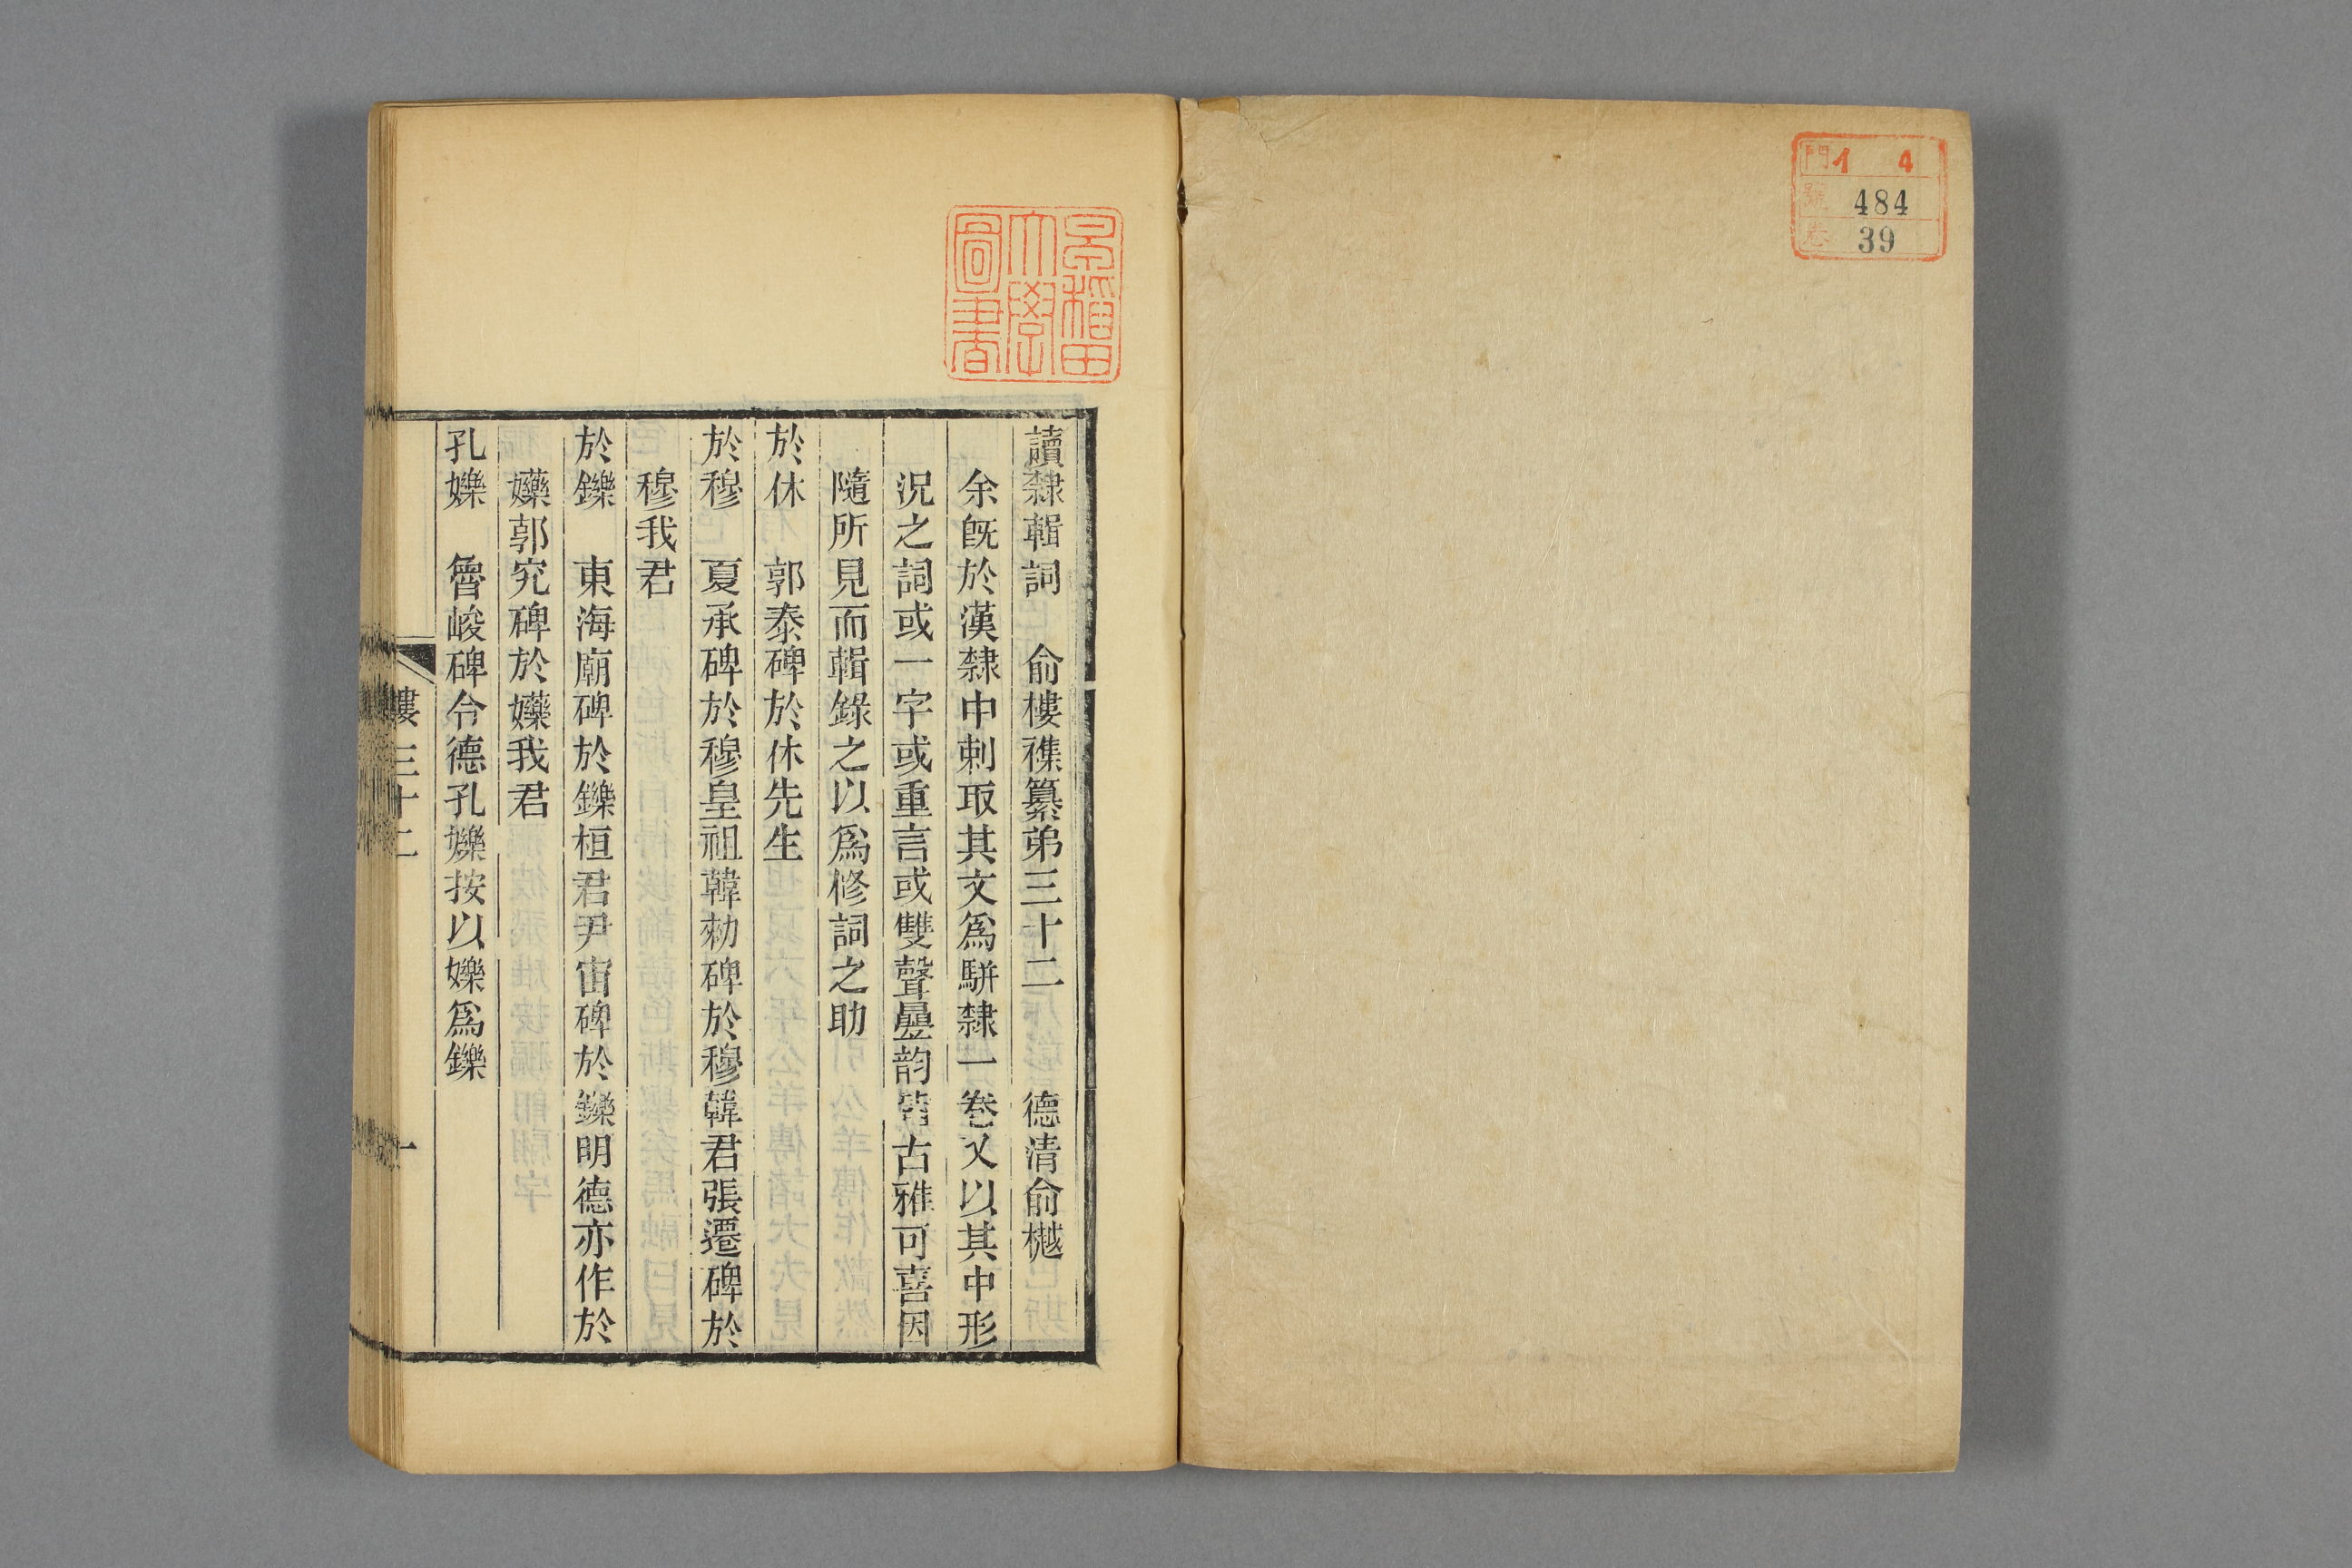 門イ 4
號 484
卷 39
早稲田
大學
圖書
讀隸輯詞 俞樓襍纂弟三十二 德清俞樾
余旣於漢隸中刺取其文爲駢隸一卷又以其中形
況之詞或一字或重言或雙聲曡韵皆古雅可喜因
隨所見而輯錄之以爲修詞之助
於休 郭泰碑於休先生
於穆 夏承碑於穆皇祖韓勑碑於穆韓君張遷碑於
穆我君
於鑠 東海廟碑於鑠桓君尹宙碑於鑠明德亦作於
㜰郭究碑於㜰我君
孔嬫 魯峻碑令德孔嬫按以嬫爲鑠
樓三十二 一